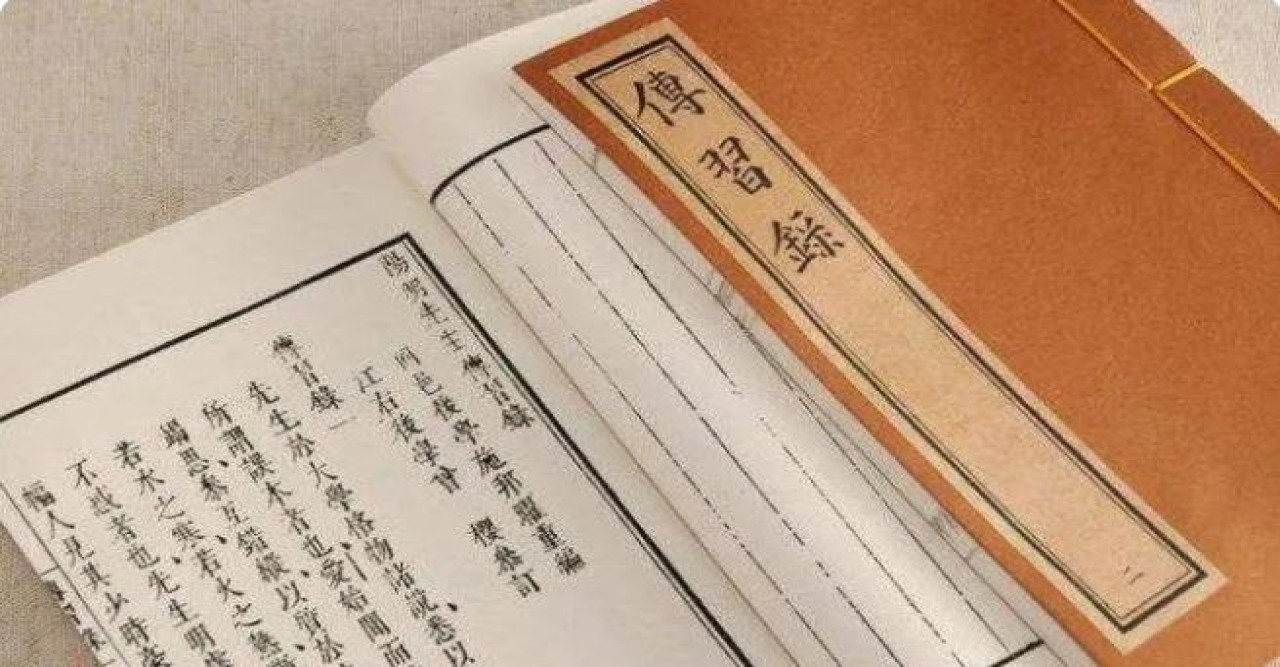 傳習錄
二
陽明先生傳習錄
同邑後學施邦曜重編
江右後學曾 櫻參訂
傳習錄一
先生於大學格物諸說、悉以
所謂誤本者也、愛始聞而
竭思、參互錯縱、以質於
若水之寒、若火之熱
不惑者也、先生明睿
幅、人見其少時豪